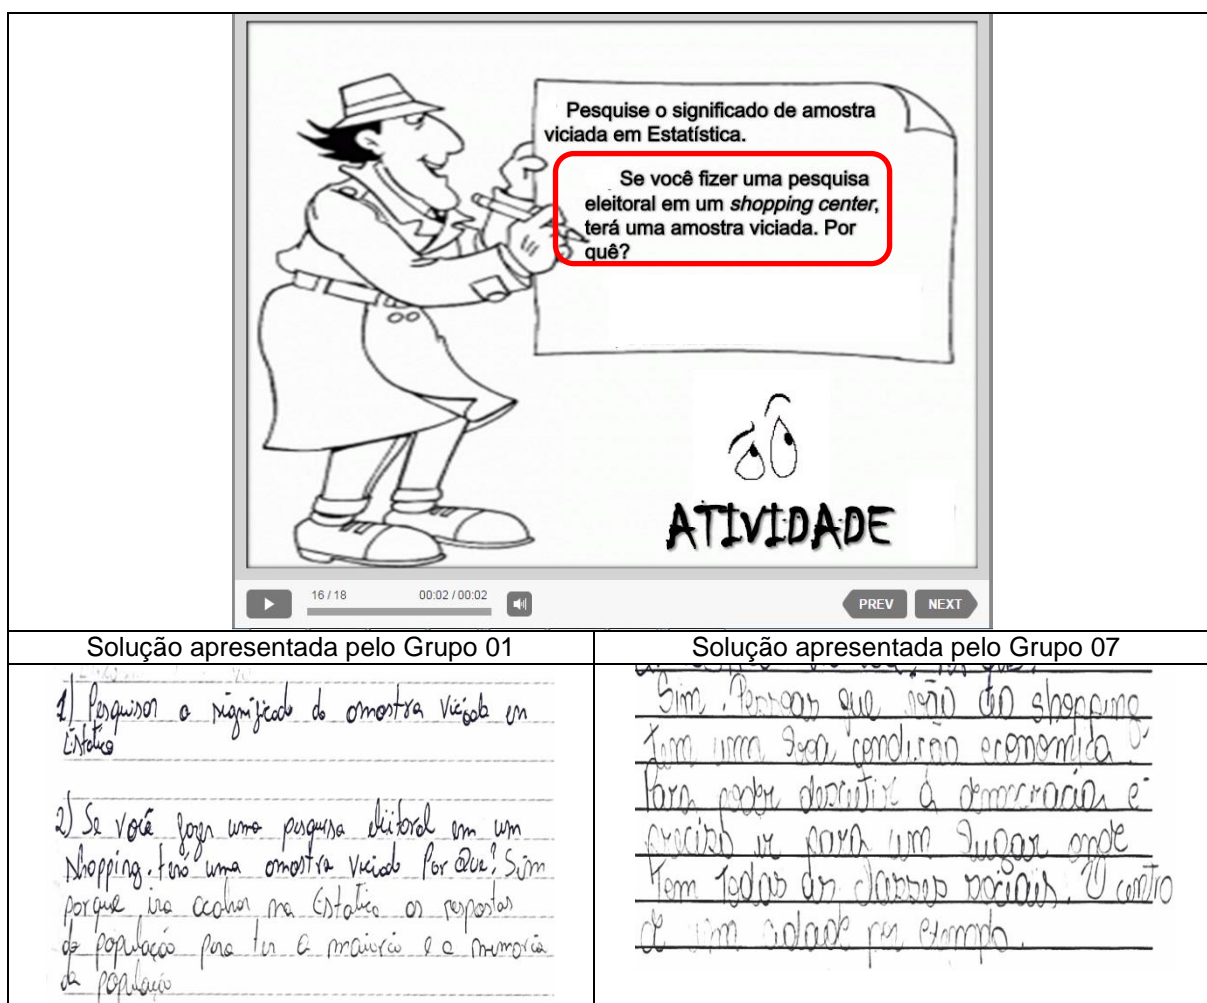 Pesquise o significado de amostra
viciada em Estatística.
Se você fizer uma pesquisa
eleitoral em um shopping center,
terá uma amostra viciada. Por
quê?
ATIVIDADE
16 / 18 00:02 / 00:02 PREV NEXT
Solução apresentada pelo Grupo 01
1) Pesquisar o significado de amostra viciada em
2) Se você fazer uma pesquisa eleitoral em um
shopping. terá uma amostra viciada Por Que? Sim
porque ira as respostas
da população para ter a maioria e a
da população
Solução apresentada pelo Grupo 07
Sim. Pessoas que vão ao shopping
tem uma boa condição economica.
Para poder a democracia é
preciso ir para um lugar onde
tem todas as classes sociais. O centro
de uma cidade por exemplo.